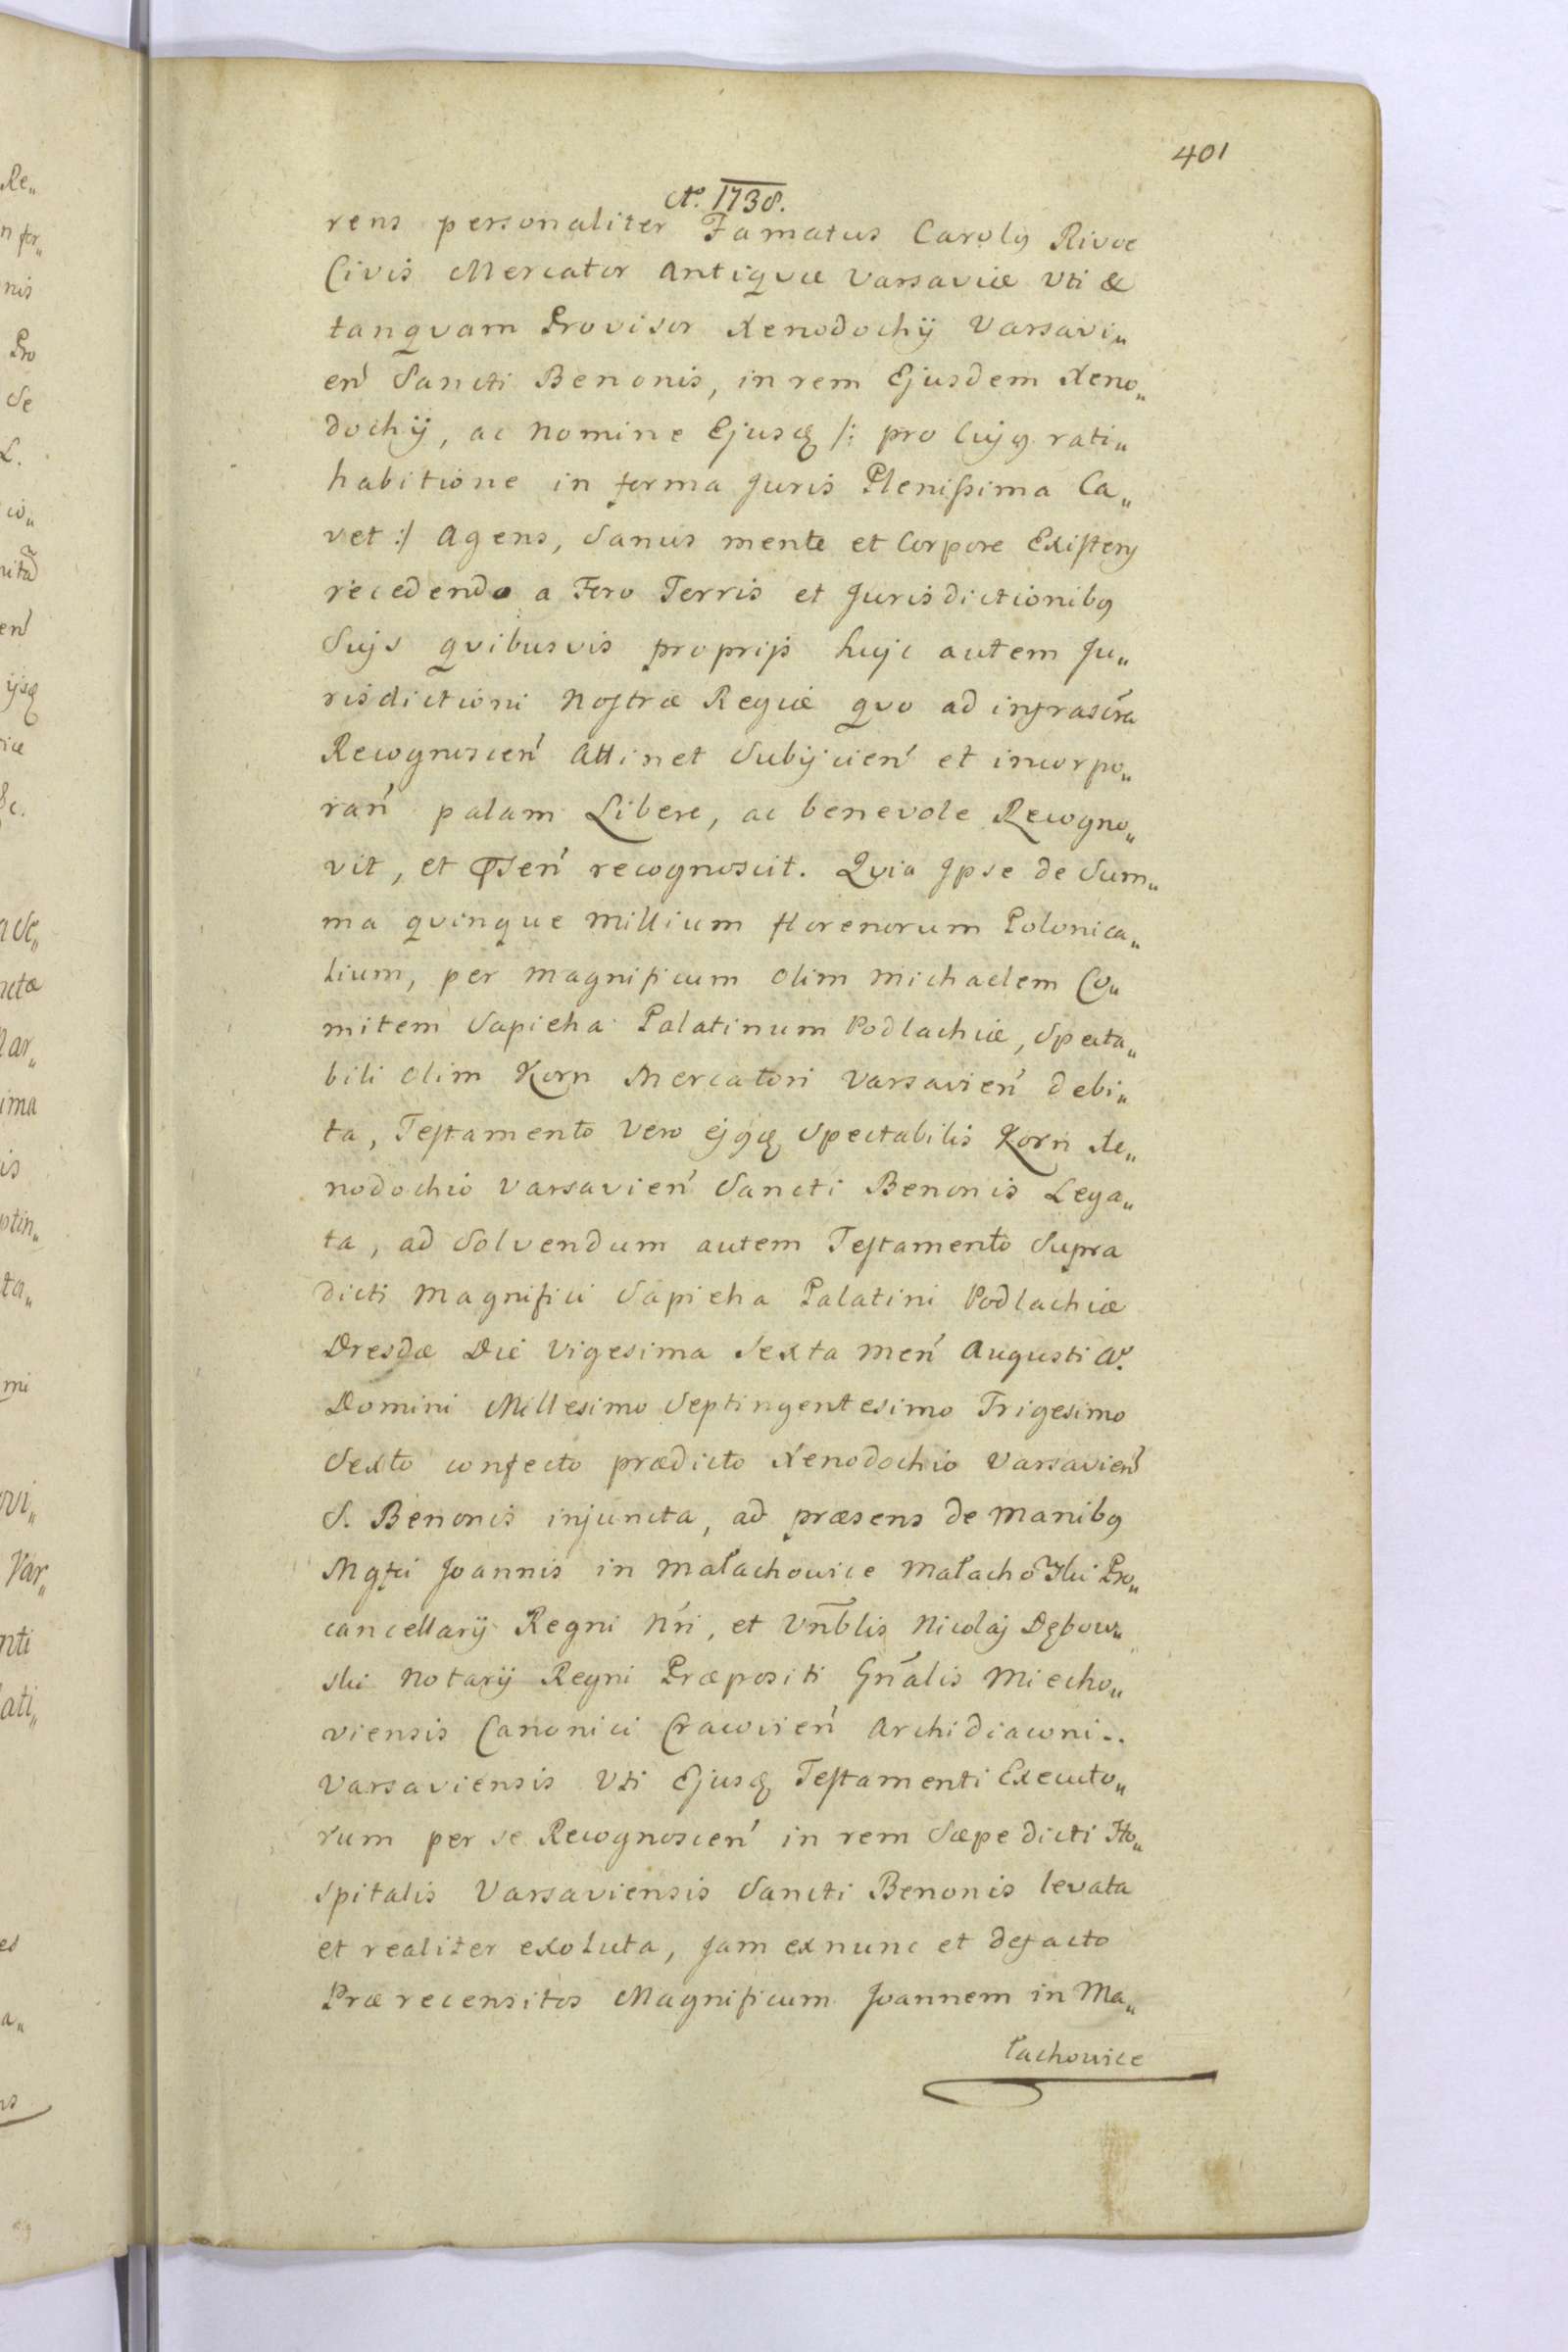 401
Ao. 1738.
rens personaliter Famatus Carolq Rivoe
Civis Mercator Antiquæ Varsaviæ Uti &
tanqvam Provisor Xenodochÿ Varsavi„
en̄ Sancti Benonis, in rem Ejusdem Xeno„
dochÿ, ac Nomine Ejusq /: pro Cujq rati„
habitione in forma Juris Plenissima Ca„
vet :/ Agens, Sanus mente et Corpore Existens
recedendo a Foro Terris et Jurisdictionibq
Sujs qvibusvis proprijs hujc autem Ju„
risdictioni Nostræ Regiæ qvo ad infrascr̃a
Recognoscen̄ Attinet Subÿcien̄ et incorpo„
ran̄ palam Libere, ac benevole Recogno„
vit, et Psen̄ recognoscit. Qvia Jpse de Sum„
ma qvinque Millium florenorum Polonica„
lium, per Magnificum olim Michaelem Co„
mitem Sapieha Palatinum Podlachiæ, Specta„
bili olim Korn Mercatori Varsavien̄ debi„
ta, Testamento Vero ejqq Spectabilis Korn Xe„
nodochio Varsavien̄ Sancti Benonis Lega„
ta, ad Solvendum autem Testamento Supra
dicti Magnifici Sapieha Palatini Podlachiæ
Dresdæ Die Vigesima Sexta Men̄ Augusti Ao.
Domini Millesimo Septingentesimo Trigesimo
Sexto confecto prædicto Xenodochio Varsavien̄
S. Benonis injuncta, ad præsens de Manibq
Mgfci Joannis in Małachowice Małachoski Pro„
cancellarÿ Regni Nr̃i, et Vn̄blis Nicolaj Dębow„
ski Notarÿ Regni Præpositi Gn̄alis Miecho„
viensis Canonici Cracovien̄ Archidiaconi..
Varsaviensis Uti Ejusq Testamenti Executo„
rum per se Recognoscen̄ in rem Sæpe dicti Ho„
spitalis Varsaviensis Sancti Benonis levata
et realiter exoluta, Jam ex nunc et defacto
Præ recensitos Magnificum Joannem in Ma„
łachowice